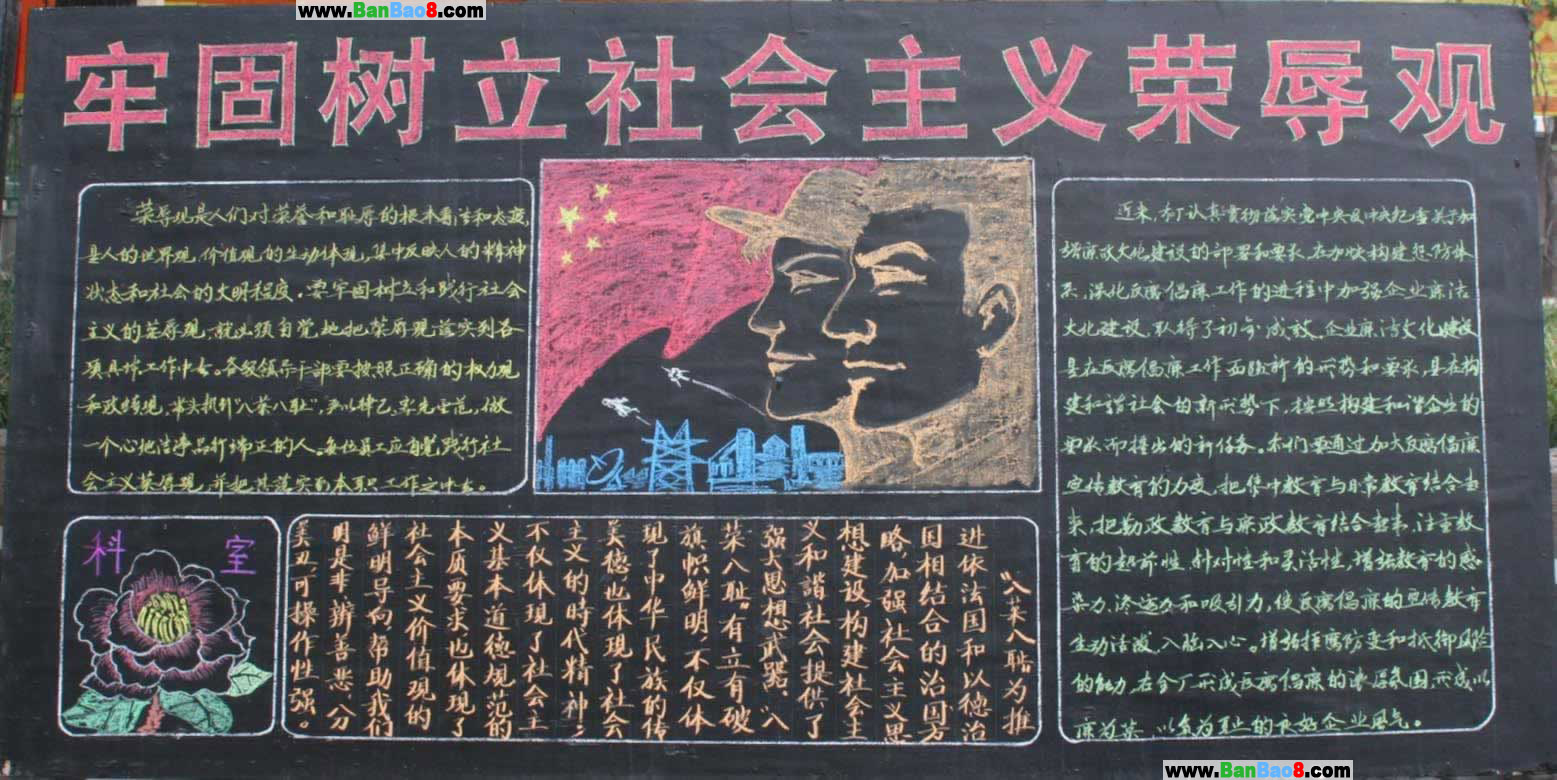 www.BanBao8.com
牢固树立社会主义荣辱观
荣辱观是人们对荣誉和耻辱的根本看法和态度,
是人的世界观,价值观的生动体现,集中反映人的精神
状态和社会的文明程度。要牢固树立和践行社会
主义的荣辱观,就必须自觉地把荣辱观落实到各
项具体工作中去。各级领导干部要按照正确的权力观
和政绩观,带头执行"八荣八耻",严以律己,率先垂范,做
一个心地洁净品行端正的人。每位员工应自觉践行社
会主义荣辱观,并把其落实到本职工作之中去。
科室
"八荣八耻"为推
进依法治国和以德治
国相结合的治国方
略,加强社会主义思
想建设,构建社会主
义和谐社会提供了
强大思想武器、"八
荣八耻"有立有破
旗帜鲜明,不仅体
现了中华民族的传
美德,也体现了社会
主义的時代精神;
不仅体现了社会主
义基本道德规范的
本质要求,也体现了
社会主义价值观的
鲜明导向帮助我们
明是非、辨善恶、分
美丑,可操作性强。
近来,本厂认真贯彻落实党中央及中央纪委关于加
强廉政文化建设的部署和要求,在加快构建惩防体
系,深化反腐倡廉工作的进程中加强企业廉洁
文化建设,取得了初步成效,企业廉洁文化建设
是在反腐倡廉工作面临新的形势和要求,是在构
建和谐社会的新形势下,按照构建和谐企业的
要求而提出的新任务。我们要通过加大反腐倡廉
宣传教育的力度,把集中教育与日常教育结合起
来,把勤政教育与廉政教育结合起来,注重教
育的超前性,针对性和灵活性,增强教育的感
染力,渗透力和吸引力,使反腐倡廉的宣传教育
生动活泼,入脑入心。增强拒腐防变和抵御风险
的能力,在全厂形成反腐倡廉的浓厚氛围,形成以
廉为荣,以贪为耻的良好企业风气。
www.BanBao8.com